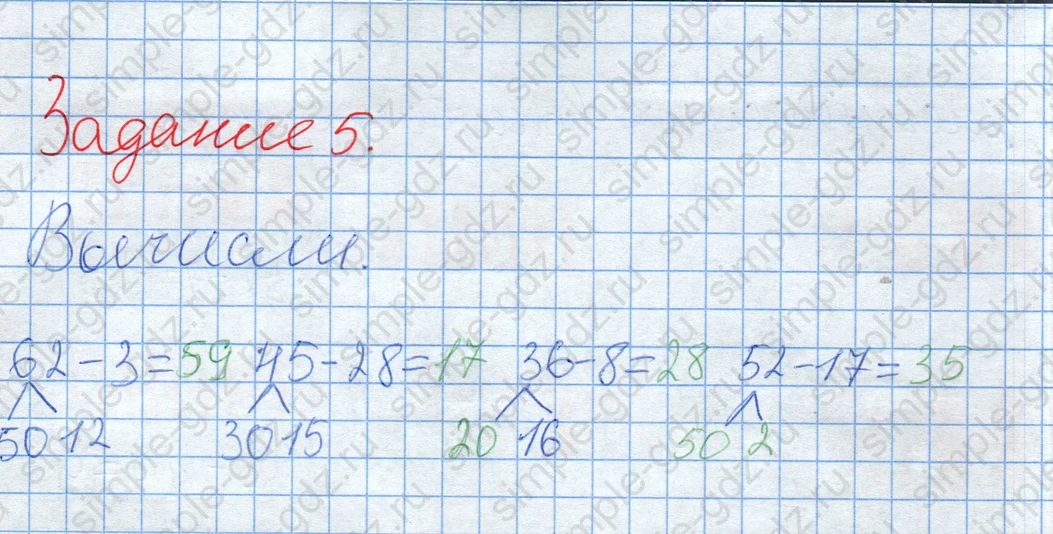 Задание 5.
Вычисли.
62-3=59 45-28=17 36-8=28 52-17=35
50 12 30 15 20 16 50 2
simple-gdz.ru